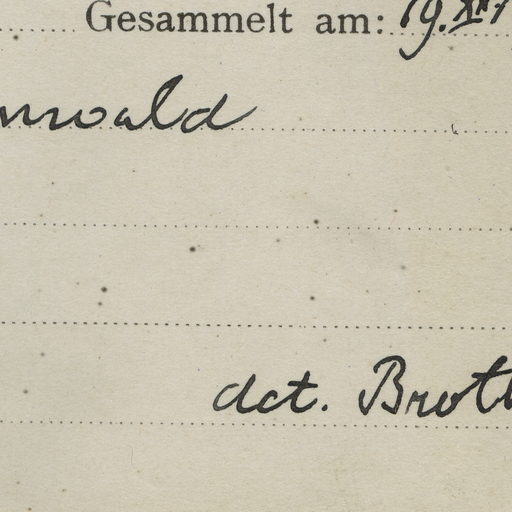 Gesammelt am: 19.XII.
nwald
det. Broth